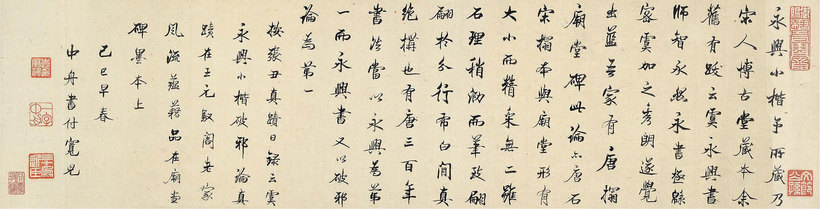 永興小楷吾所藏乃
宋人博古堂藏本余
舊有跋云虞永興書
師智永然永書極綿
密虞加之秀朗遂覺
出藍吾家有唐搨
廟堂碑此論出唐石
宋搨本與廟堂形有
大小而精采無二雖
石理稍泐而筆致翩
翩於分行布白間真
絕搆也有唐三百年
書法當以永興為第
一而永興書又以破邪
論為第一
按張丑真蹟日錄云虞
永興小楷破邪論真
蹟在王元馭閣老家
風流蘊藉品在廟堂
碑墨本上
己巳早春
申舟書付寬兒